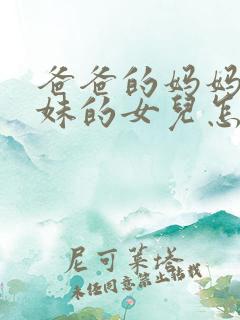 爸爸的妈妈
妹的女兒怎
尼可萊塔
未经同意禁止转载